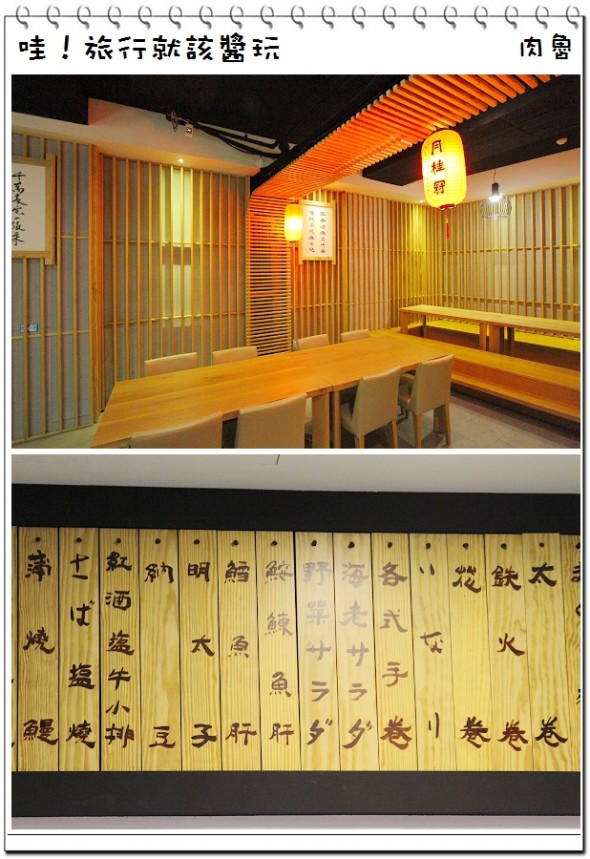 哇！旅行就該醬玩
肉魯
月桂冠
太巻
鉄火巻
花巻
いなり
各式手巻
海老サラダ
野菜サラダ
鮟鱇魚肝
鱈魚肝
明太子
納豆
紅酒塩牛小排
さば塩燒
蒲燒鰻